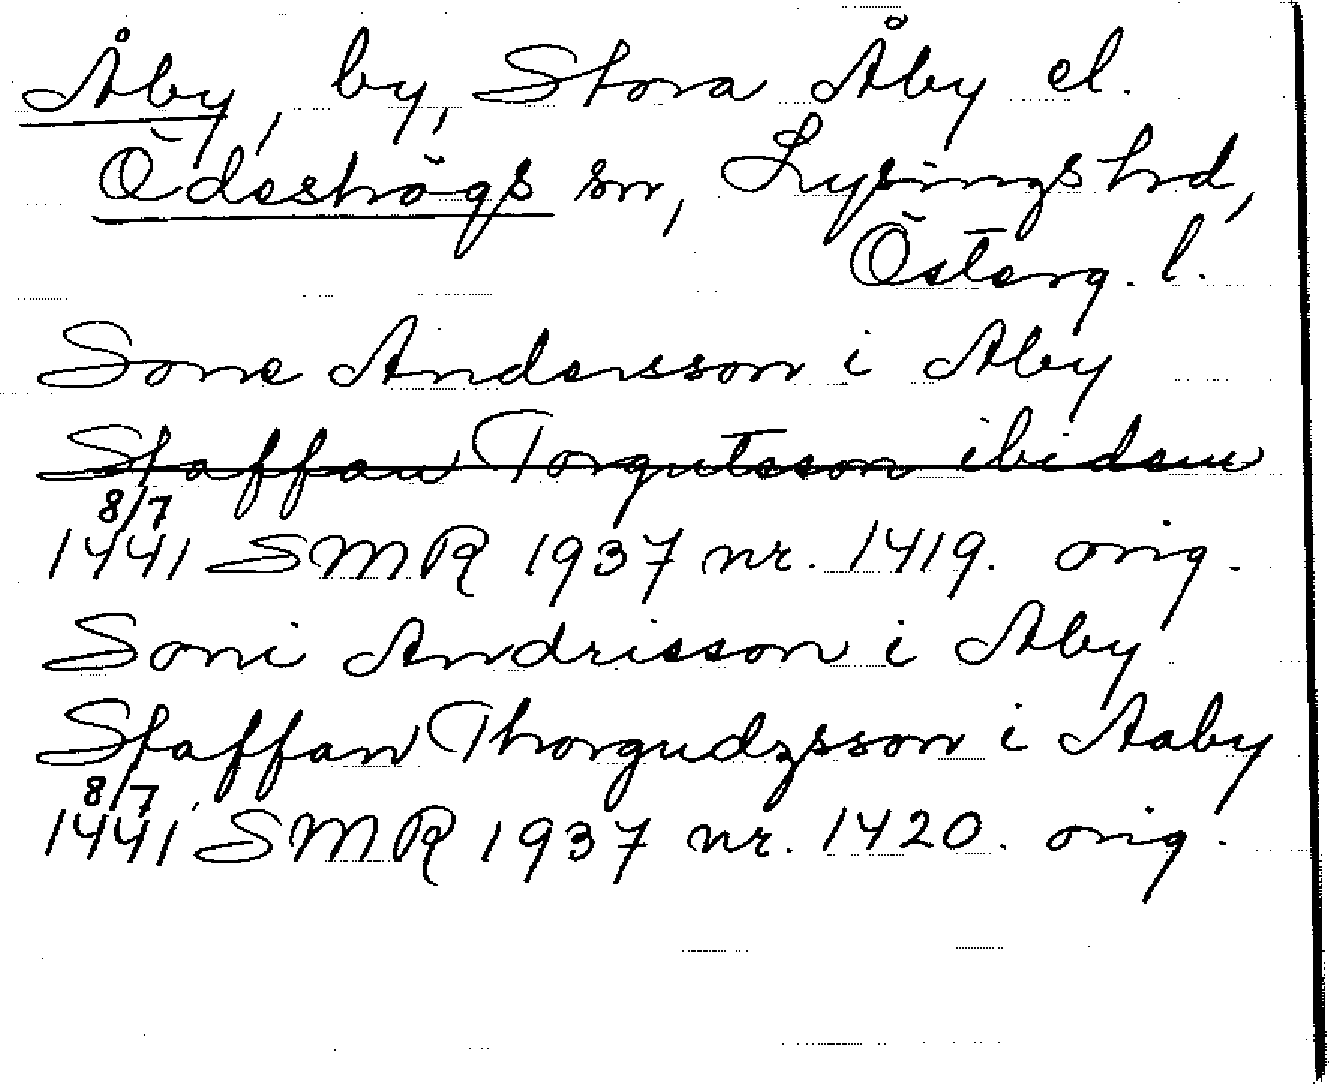 Åby, by, Stora Åby el.
Ödeshögs sn, Lysings hrd,
Österg. l.
Sone Andersson i Aby
Staffan Torgutsson ibidem
8/7
1441 SMR 1937 nr. 1419. orig.
Soni Andrisson i Aby
Staffan Thorgudzsson i Aaby
8/7
1441 SMR 1937 nr. 1420. orig.